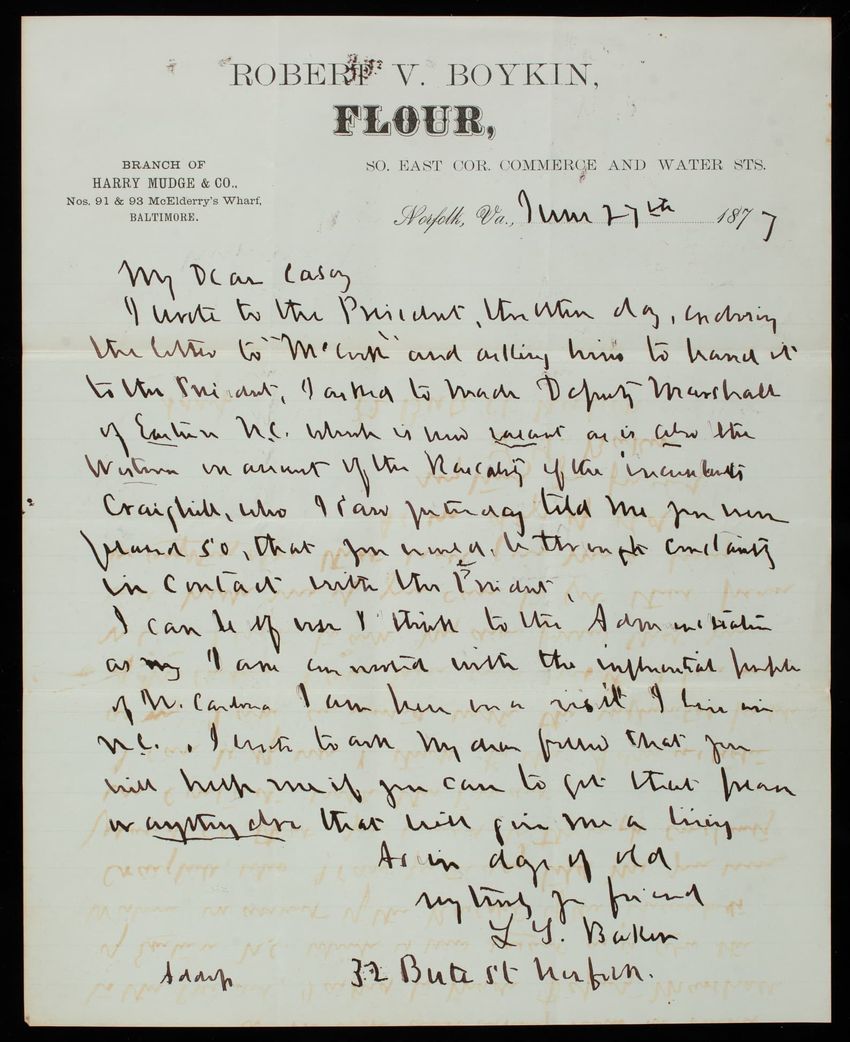 ROBERT V. BOYKIN,
FLOUR,
SO. EAST COR. COMMERCE AND WATER STS.
BRANCH OF
HARRY MUDGE & CO.,
Nos. 91 & 93 McElderry's Wharf,
BALTIMORE.
Norfolk, Va., June 27th 1877
My Dear Casey
I wrote to the President, the other day, enclosing
the letter to "McCook" and asking him to hand it
to the President, I asked to made Deputy Marshall
of Eastern N.C. which is now vacant as is also the
Western on account of the Rascality of the incumbents
Craighill, who I saw yesterday told me you were
placed so, that you would be thrown constantly
in contact with the President,
I can be of use I think to the Administration
as I am connected with the influential people
of N. Carolina I am here on a visit I live in
N.C. , I write to ask my dear friend that you
will help me if you can to get that place
or anything else that will give me a living
As in days of old
very truly yr friend
L S. Baker
Address 32 Bute St Norfolk.